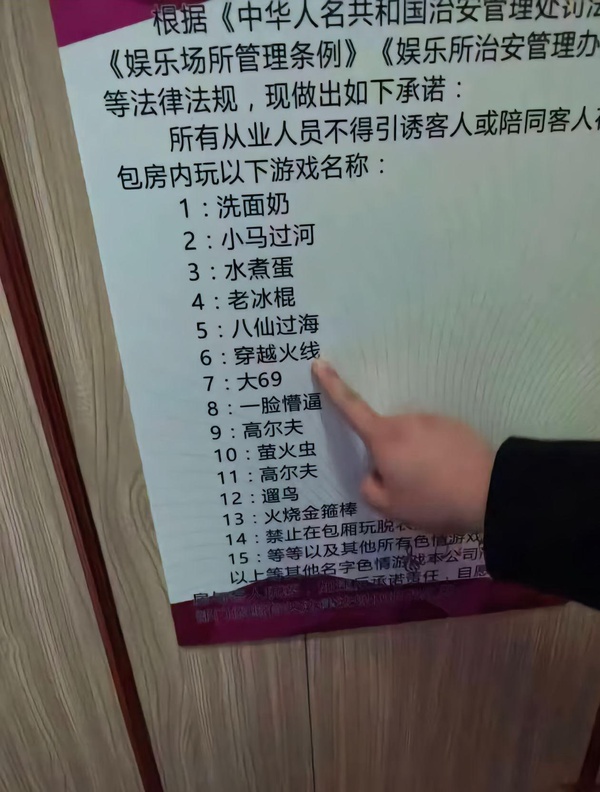 根据《中华人名共和国治安管理处罚法
《娱乐场所管理条例》《娱乐所治安管理办
等法律法规，现做出如下承诺：
所有从业人员不得引诱客人或陪同客人在
包房内玩以下游戏名称：
1：洗面奶
2：小马过河
3：水煮蛋
4：老冰棍
5：八仙过海
6：穿越火线
7：大69
8：一脸懵逼
9：高尔夫
10：萤火虫
11：高尔夫
12：遛鸟
13：火烧金箍棒
14：禁止在包厢玩脱衣
15：等等以及其他所有色情游戏
以上等其他名字色情游戏本公司
承诺责任，自愿